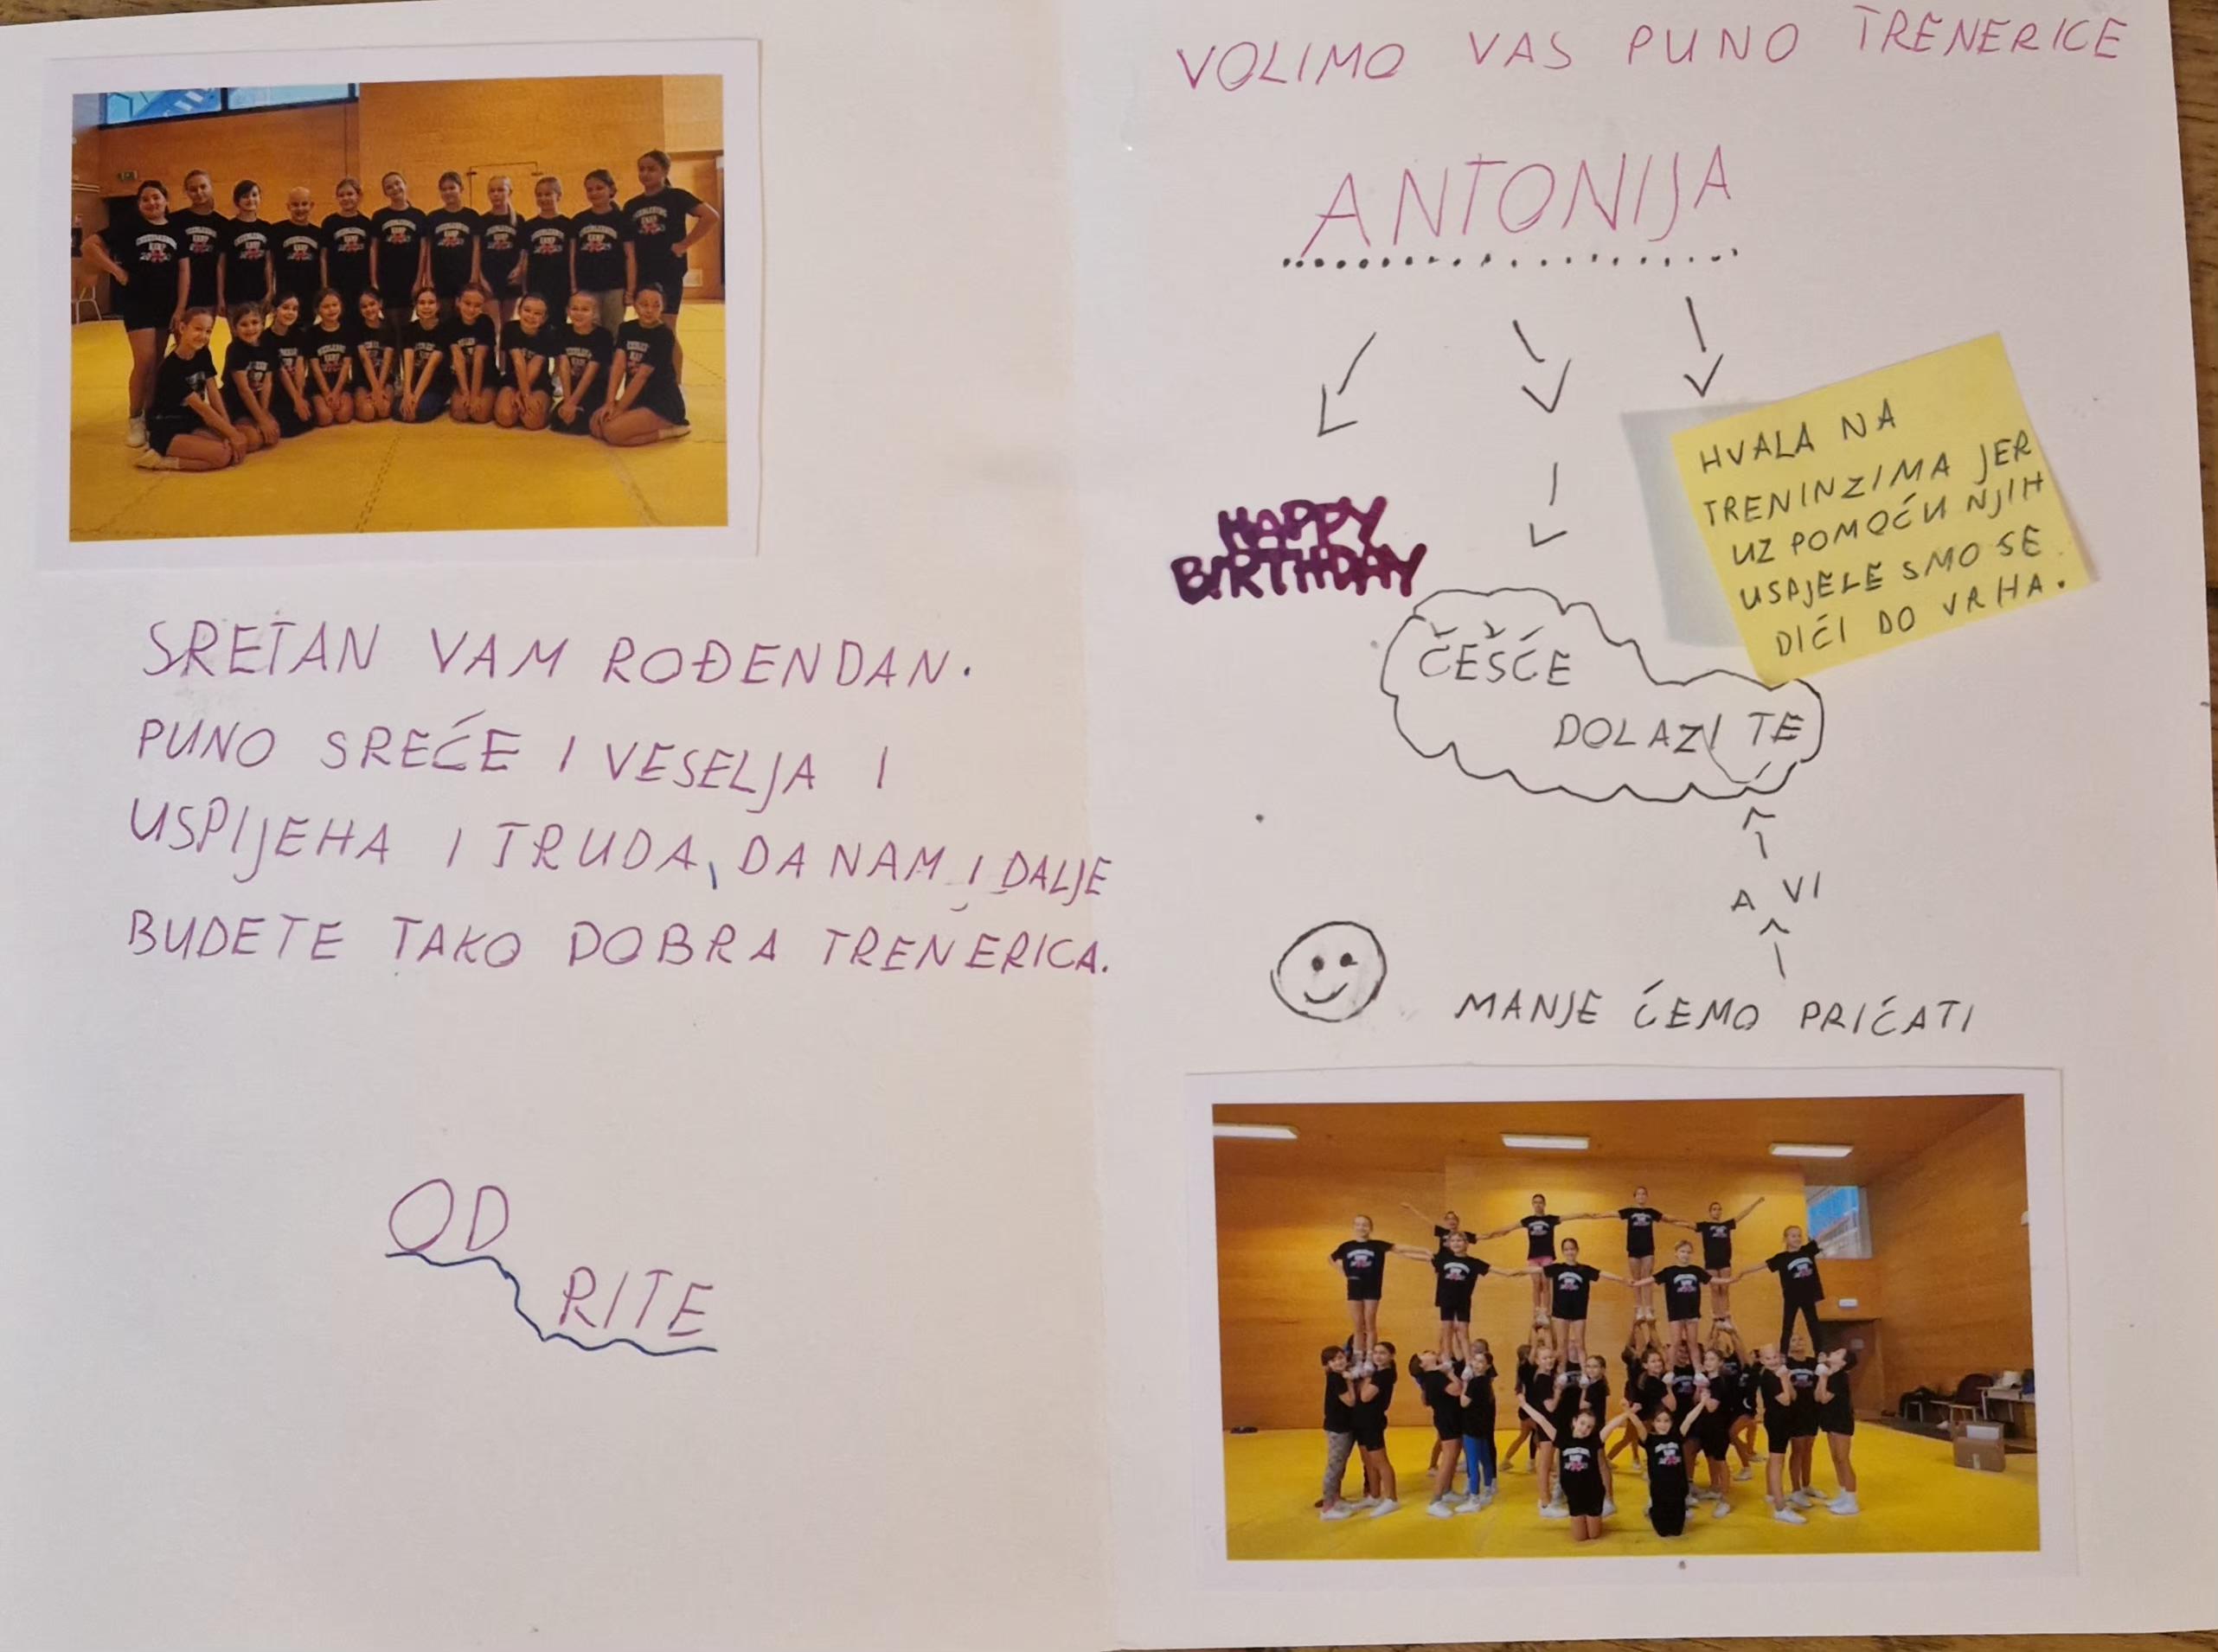 SRETAN VAM ROĐENDAN.
PUNO SREĆE I VESELJA I
USPIJEHA I TRUDA, DA NAM I DALJE
BUDETE TAKO DOBRA TRENERICA.
OD
RITE
VOLIMO VAS PUNO TRENERICE
ANTONIJA
HAPPY
BIRTHDAY
HVALA NA
TRENINZIMA JER
UZ POMOĆU NJIH
USPJELE SMO SE
DIĆI DO VRHA.
ČEŠĆE
DOLAZITE
A VI
MANJE ĆEMO PRIĆATI